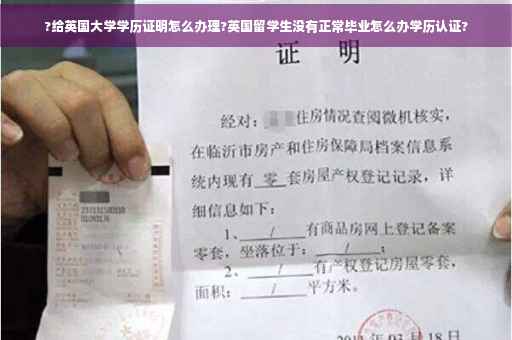 ?给英国大学学历证明怎么办理?英国留学生没有正常毕业怎么办学历认证?
证 明
经对: 住房情况查阅微机核实,
在临沂市房产和住房保障局档案信息系
统内现有 零 套房屋产权登记记录,详
细信息如下:
1、 / 有商品房网上登记备案
零套,坐落位于: / ;
2、 / 有产权登记房屋零套,
面积: / 平方米。
月 18 日